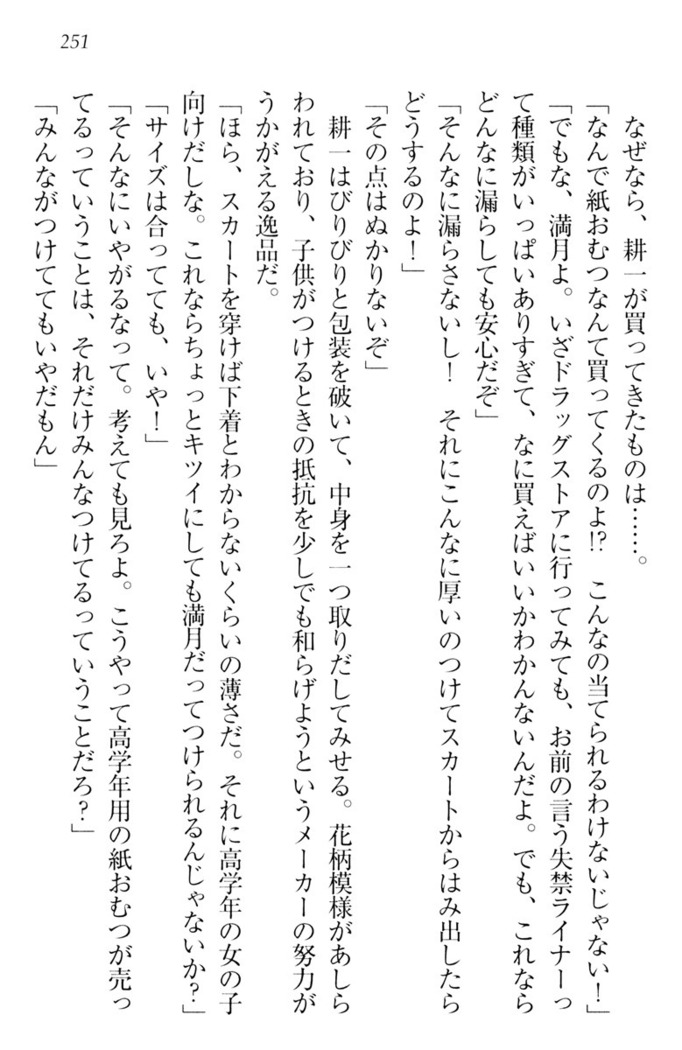 251
なぜなら、耕一が買ってきたものは……。
「なんで紙おむつなんて買ってくるのよ!? こんなの当てられるわけないじゃない！」
「でもな、満月よ。いざドラッグストアに行ってみても、お前の言う失禁ライナーっ
て種類がいっぱいありすぎて、なに買えばいいかわかんないんだよ。でも、これなら
どんなに漏らしても安心だぞ」
「そんなに漏らさないし！　それにこんなに厚いのつけてスカートからはみ出したら
どうするのよ！」
「その点はぬかりないぞ」
耕一はびりびりと包装を破いて、中身を一つ取りだしてみせる。花柄模様があしら
われており、子供がつけるときの抵抗を少しでも和らげようというメーカーの努力が
うかがえる逸品だ。
「ほら、スカートを穿けば下着とわからないくらいの薄さだ。それに高学年の女の子
向けだしな。これならちょっとキツイにしても満月だってつけられるんじゃないか？」
「サイズは合ってても、いや！」
「そんなにいやがるなって。考えても見ろよ。こうやって高学年用の紙おむつが売っ
てるっていうことは、それだけみんなつけてるっていうことだろ？」
「みんながつけててもいやだもん」